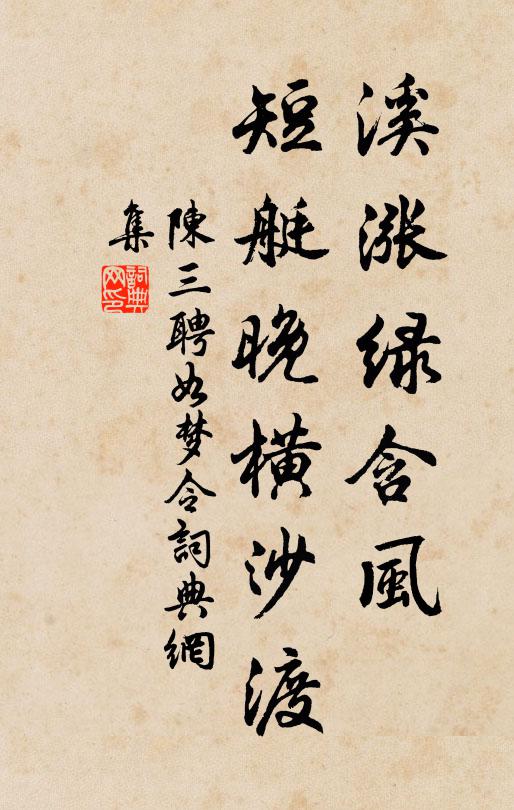 溪漲綠含風
短艇晚橫沙渡
陳三聘如梦令詞典網
集
詞典
网印